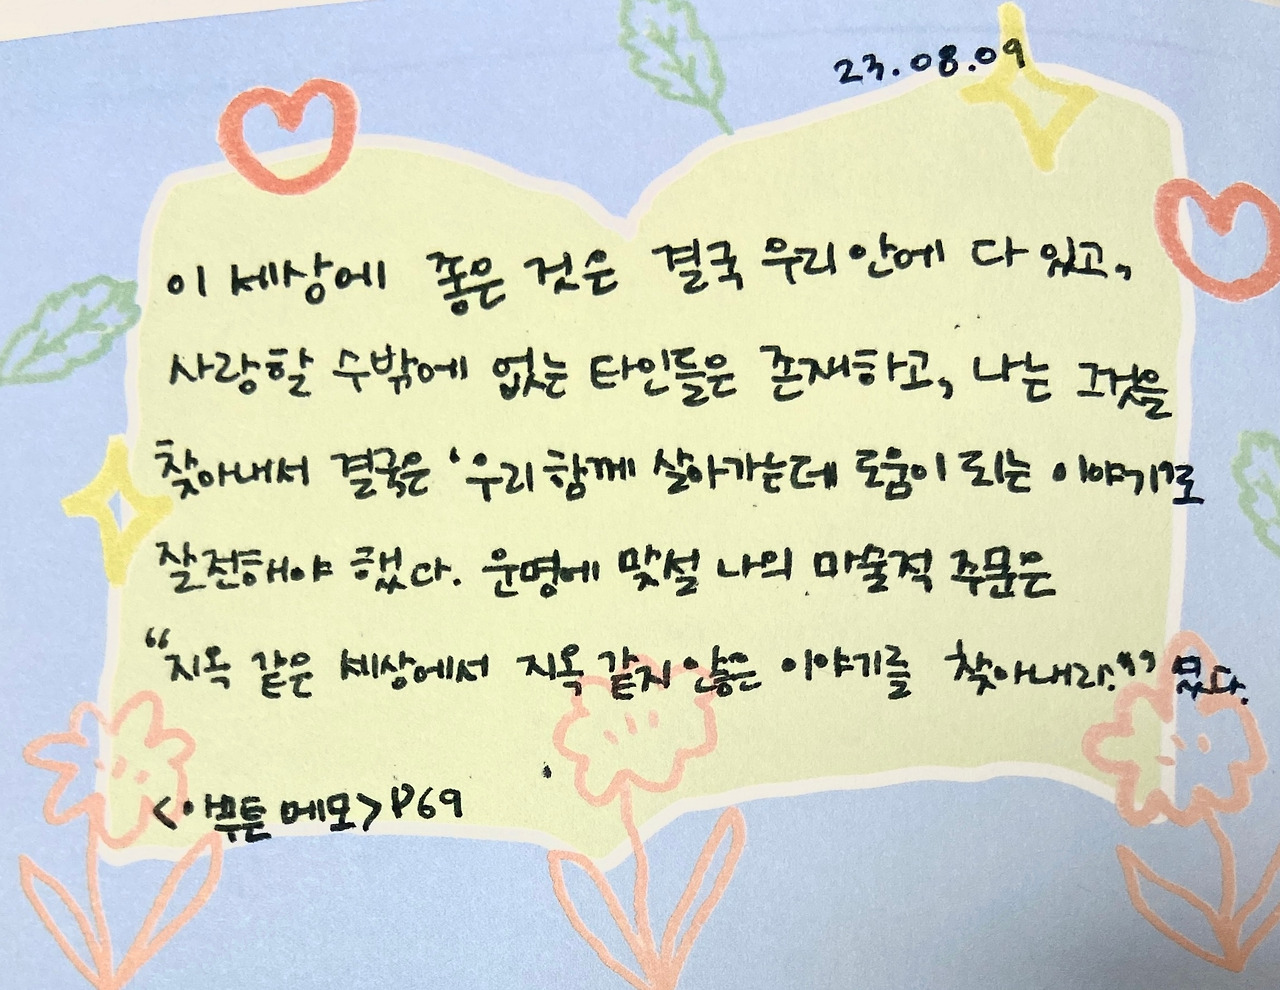 23.08.09
이 세상에 좋은 것은 결국 우리 안에 다 있고,
사랑할 수밖에 없는 타인들은 존재하고, 나는 그것을
찾아내서 결국은 '우리 함께 살아가는데 도움이 되는 이야기'로
잘 전해야 했다. 운명에 맞설 나의 마술적 주문은
"지옥 같은 세상에서 지옥 같지 않은 이야기를 찾아내라."였다.
<아무튼 메모> P69